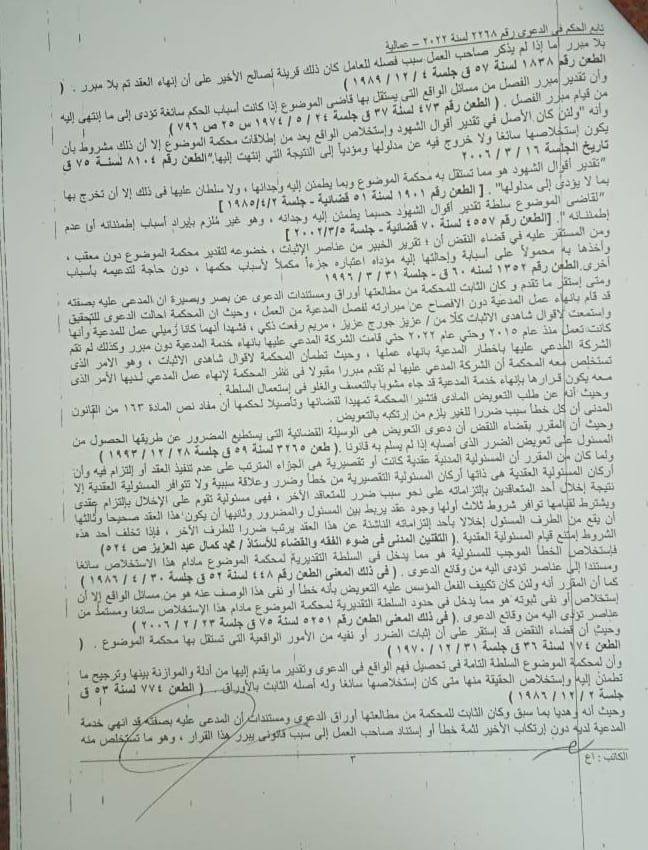 تابع الحكم في الدعوى رقم ٢٢٦٨ لسنة ٢٠٢٢ – عمالية
بلا مبرر أما إذا لم يذكر صاحب العمل سبب فصله للعامل كان ذلك قرينة لصالح الأخير على أن إنهاء العقد تم بلا مبرر . (
الطعن رقم ١٨٣٨ لسنة ٥٧ ق جلسة ٤ / ١٢ / ١٩٨٩ )
وأن تقدير مبرر الفصل من مسائل الواقع التي يستقل بها قاضى الموضوع إذا كانت أسباب الحكم سائغة تؤدى إلى ما إنتهى إليه
من قيام مبرر الفصل . ( الطعن رقم ٤٧٣ لسنة ٣٧ ق جلسة ٢٤ / ٥ / ١٩٧٤ س ٢٥ ص ٧٩٦ )
وأنه "ولئن كان الأصل في تقدير أقوال الشهود وإستخلاص الواقع يعد من إطلاقات محكمة الموضوع إلا أن ذلك مشروط بأن
يكون إستخلاصها سائغا ولا خروج فيه عن مدلولها ومؤدياً إلى النتيجة التي إنتهت إليها."الطعن رقم ٨١٠٤ لسنـة ٧٥ ق
تاريخ الجلسة ١٦ / ٣ / ٢٠٠٦
"تقدير أقوال الشهود هو مما تستقل به محكمة الموضوع وبما يطمئن إليه وجدانها ، ولا سلطان عليها فى ذلك إلا أن تخرج بها
بما لا يؤدى إلى مدلولها" . [ الطعن رقم ١٩٠١ لسنة ٥١ قضائية - جلسة ١٩٨٥/٤/٢]
"لقاضى الموضوع سلطة تقدير أقوال الشهود حسبما يطمئن إليه وجدانه ، وهو غير مُلزم بإيراد أسباب إطمئنانه أو عدم
إطمئنانه ". [الطعن رقم ٤٥٥٧ لسنة ٧٠ قضائية - جلسة ٢٠٠٢/٣/٥ ]
ومن المستقر عليه في قضاء النقض أن ؛ تقرير الخبير من عناصر الإثبات ، خضوعه لتقدير محكمة الموضوع دون معقب ،
وأخذها به محمولاً على أسبابه وإحالتها إليه مؤداه اعتباره جزءاً مكملاً لأسباب حكمها ، دون حاجة لتدعيمه بأسباب
أخرى.الطعن رقم ١٣٥٢ لسنه ٦٠ ق - جلسة ٣١ / ٣ / ١٩٩٦
ومتى إستقر ما تقدم و كان الثابت للمحكمة من مطالعتها أوراق ومستندات الدعوى عن بصر وبصيرة ان المدعى عليه بصفته
قد قام بانهاء عمل المدعية دون الافصاح عن مبرراته لفصل المدعية من العمل ، وحيث ان المحكمة احالت الدعوى للتحقيق
واستمعت لاقوال شاهدى الاثبات كلا من / عزيز جورج عزيز ، مريم رفعت ذكي ، فشهدا أنهما كانا زميلي عمل للمدعية وأنها
كانت تعمل منذ عام ٢٠١٥ وحتي عام ٢٠٢٢ حتي قامت الشركة المدعي عليها بانهاء خدمة المدعية دون مبرر وكذلك لم تقم
الشركة المدعي عليها باخطار المدعية بانهاء عملها ، وحيث تطمأن المحكمة لاقوال شاهدى الاثبات ، وهو الامر الذى
تستخلص معه المحكمة أن الشركة المدعي عليها لم تقدم مبررا مقبولا فى نظر المحكمة لإنهاء عمل المدعي لديها الأمر الذى
معه يكون قرارها بإنهاء خدمة المدعية قد جاء مشوبا بالتعسف والغلو فى إستعمال السلطة .
وحيث أنه عن طلب التعويض المادى فتشير المحكمة تمهيدا لقضائها وتأصيلا لحكمها أن مفاد نص المادة ١٦٣ من القانون
المدنى أن كل خطأ سبب ضررا للغير يلزم من إرتكبه بالتعويض.
وحيث أن المقرر بقضاء النقض أن دعوى التعويض هى الوسيلة القضائية التى يستطيع المضرور عن طريقها الحصول من
المسئول على تعويض الضرر الذى أصابه إذا لم يسلم به قانونا .( طعن ٣٢٦٥ لسنة ٥٩ ق جلسة ٢٨ / ١٢ / ١٩٩٣ )
ولما كان من المقرر أن المسئولية المدنية عقدية كانت أو تقصيرية هى الجزاء المترتب على عدم تنفيذ العقد أو إلتزام فيه وأن
أركان المسئولية العقدية هى ذاتها أركان المسئولية التقصيرية من خطأ وضرر وعلاقة سببية ولا تتوافر المسئولية العقدية إلا
نتيجة إخلال أحد المتعاقدين بإلتزاماته على نحو سبب ضرر للمتعاقد الآخر ، فهى مسئولية تقوم على الإخلال بإلتزام عقدى
ويشترط لقيامها توافر شروط ثلاث أولها وجود عقد يربط بين المسئول والمضرور وثانيها أن يكون هذا العقد صحيحا وثالثها
أن يقع من الطرف المسئول إخلالا بأحد إلتزاماته الناشئة عن هذا العقد يرتب ضررا للطرف الآخر ، فإذا تخلف أحد هذه
الشروط إمتنع قيام المسئولية العقدية .( التقنين المدنى فى ضوء الفقه والقضاء للأستاذ / محمد كمال عبد العزيز ص ٥٢٤)
فإستخلاص الخطأ الموجب للمسئولية هو مما يدخل فى السلطة التقديرية لمحكمة الموضوع مادام هذا الاستخلاص سائغا
ومستندا إلى عناصر تؤدى اليه من وقائع الدعوى . ( فى ذلك المعنى الطعن رقم ٤٤٨ لسنة ٥٢ ق جلسة ٣٠ / ٤ / ١٩٨٦ )
كما أن المقرر أنه ولئن كان تكييف الفعل المؤسس عليه التعويض بأنه خطأ أو نفى هذا الوصف عنه هو من مسائل الواقع إلا أن
إستخلاص أو نفى ثبوته هو مما يدخل فى حدود السلطة التقديرية لمحكمة الموضوع مادام هذا الإستخلاص سائغا ومستمد من
عناصر تؤدى اليه من وقائع الدعوى .( فى ذلك المعنى الطعن رقم ٥٢٥١ لسنة ٧٥ ق جلسة ٢٣ / ٢ / ٢٠٠٦ )
وحيث أن قضاء النقض قد إستقر على أن إثبات الضرر أو نفيه من الأمور الواقعية التى تستقل بها محكمة الموضوع . (
الطعن ١٧٤ لسنة ٣٦ ق جلسة ٣١ / ١٢ / ١٩٧٠ )
وأن لمحكمة الموضوع السلطة التامة فى تحصيل فهم الواقع فى الدعوى وتقدير ما يقدم إليها من أدلة والموازنة بينها وترجيح ما
تطمئن إليه وإستخلاص الحقيقة منها متى كان إستخلاصها سائغا وله أصله الثابت بالأوراق. ( الطعن ٧٧٤ لسنة ٥٣ ق
جلسة ٢ / ١٢ / ١٩٨٦ )
وحيث أنه وهديا بما سبق وكان الثابت للمحكمة من مطالعتها أوراق الدعوى ومستندات أن المدعى عليه بصفته قد انهي خدمة
المدعية لديه دون إرتكاب الأخير ثمة خطأ أو إستناد صاحب العمل إلى سبب قانونى يبرر هذا القرار ، وهو ما تستخلص منه
الكاتب : أع
٣